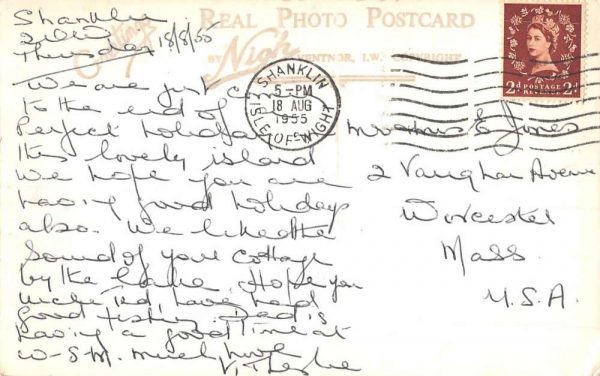 Shanklin
Thursday 18/8/55
REAL PHOTO POSTCARD
BY Nigh VENTNOR, I.W. COPYRIGHT
SHANKLIN
5 - PM
18 AUG
1955
ISLE OF WIGHT
2d POSTAGE REVENUE 2d
We are just
to the end of
Perfect holiday
this lovely island
We hope you are
having good holidays
also. We liked the
Sound of your cottage
by the Lake. Hope you
have had
good fishing. Dad is
having a good time at
W-S-M. much love
V,
E Jones
2 Vaughan Avenue
Worcester
Mass.
U.S.A.